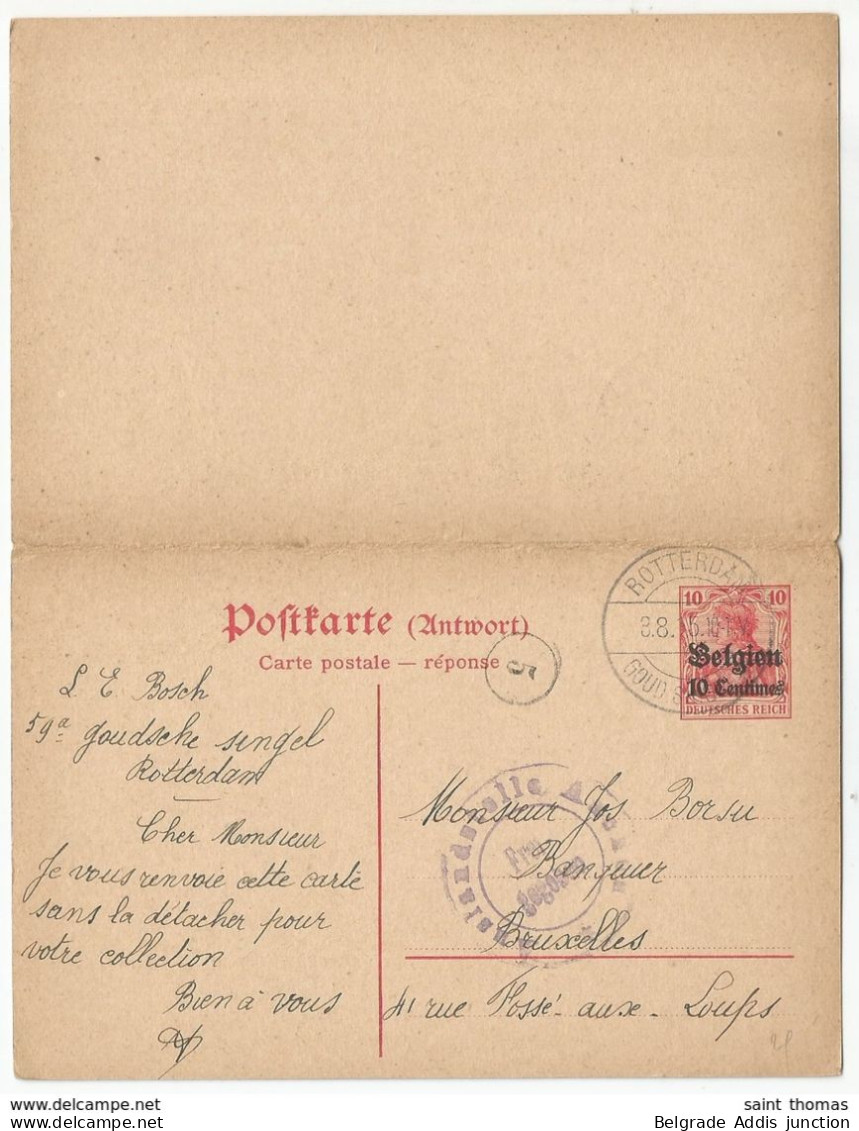 Postkarte (Antwort)
Carte postale — réponse
ROTTERDAM
8.8. 5.10-1.V
GOUD S
10 10
Belgien
10 Centimes
DEUTSCHES REICH
5
L E Bosch
59a goudsche singel
Rotterdam
Cher Monsieur
Je vous renvoie cette carte
sans la détacher pour
votre collection
Bien à vous
Monsieur Jos Borsu
Banquier
Bruxelles
41 rue Fossé-aux-Loups
saint thomas
Belgrade Addis junction